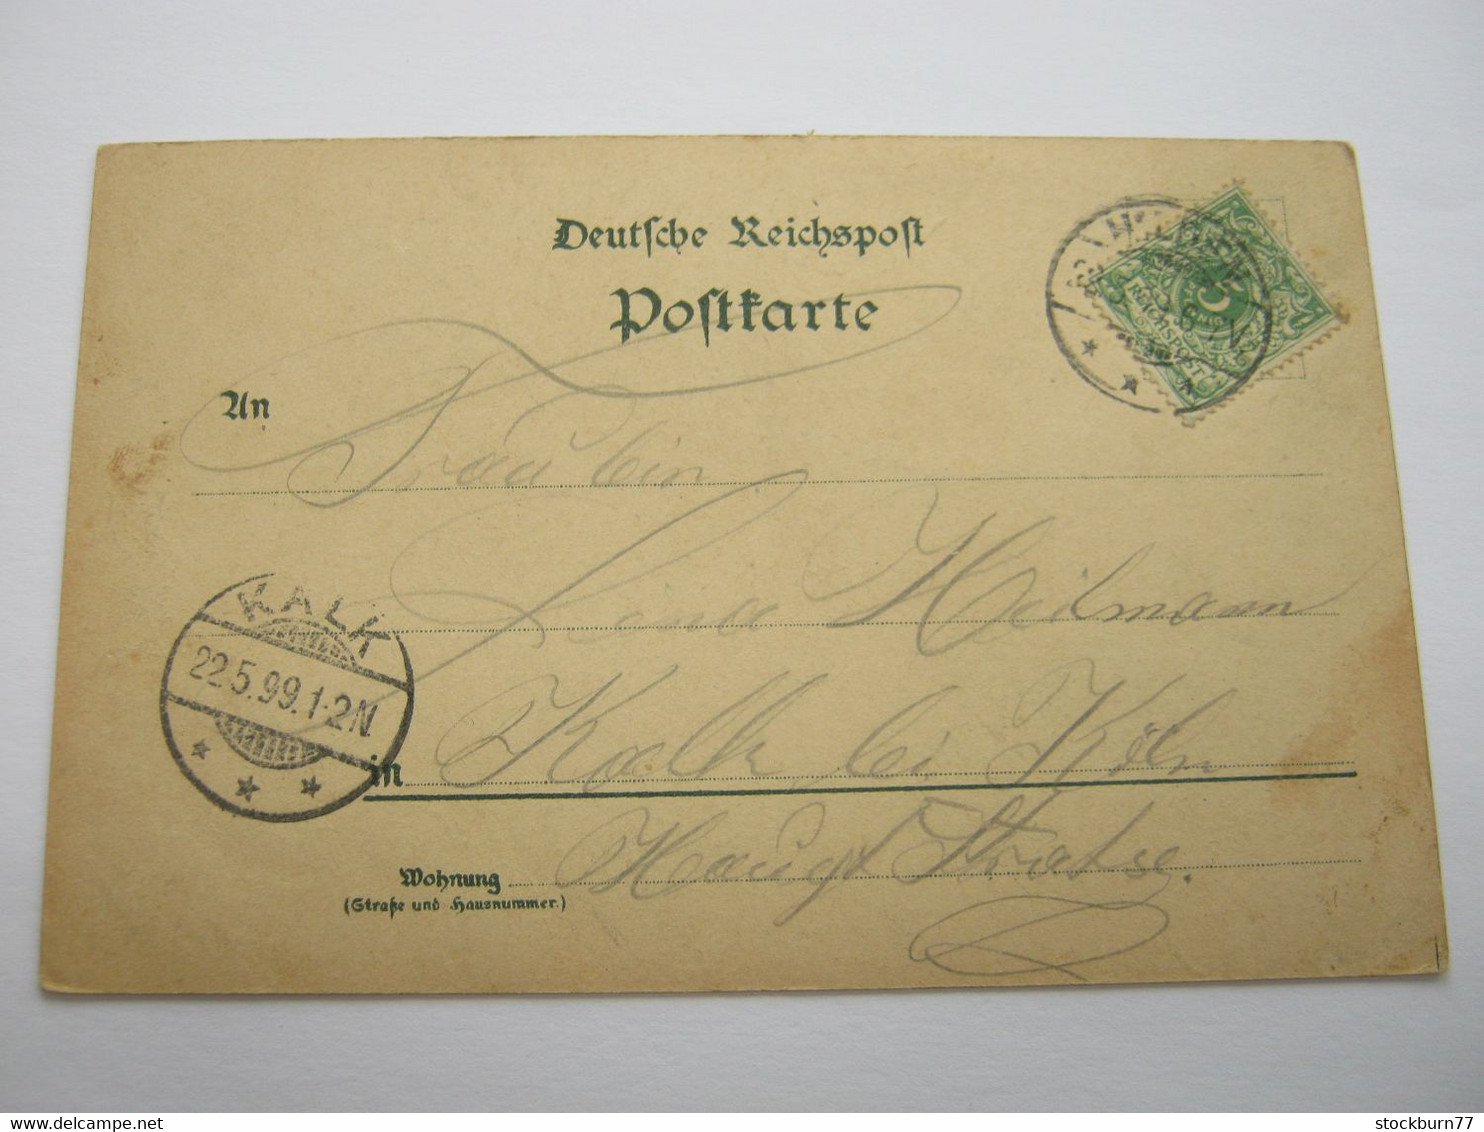 Deutsche Reichspost
Postkarte
An
Fräulein
5
REICHSPOST
Heilmann
KALK
22.5.99.1-2N
in Kalk bei Köln
Wohnung Haupt Strahse.
(Straße und Hausnummer.)
delcampe.net
stockburn77